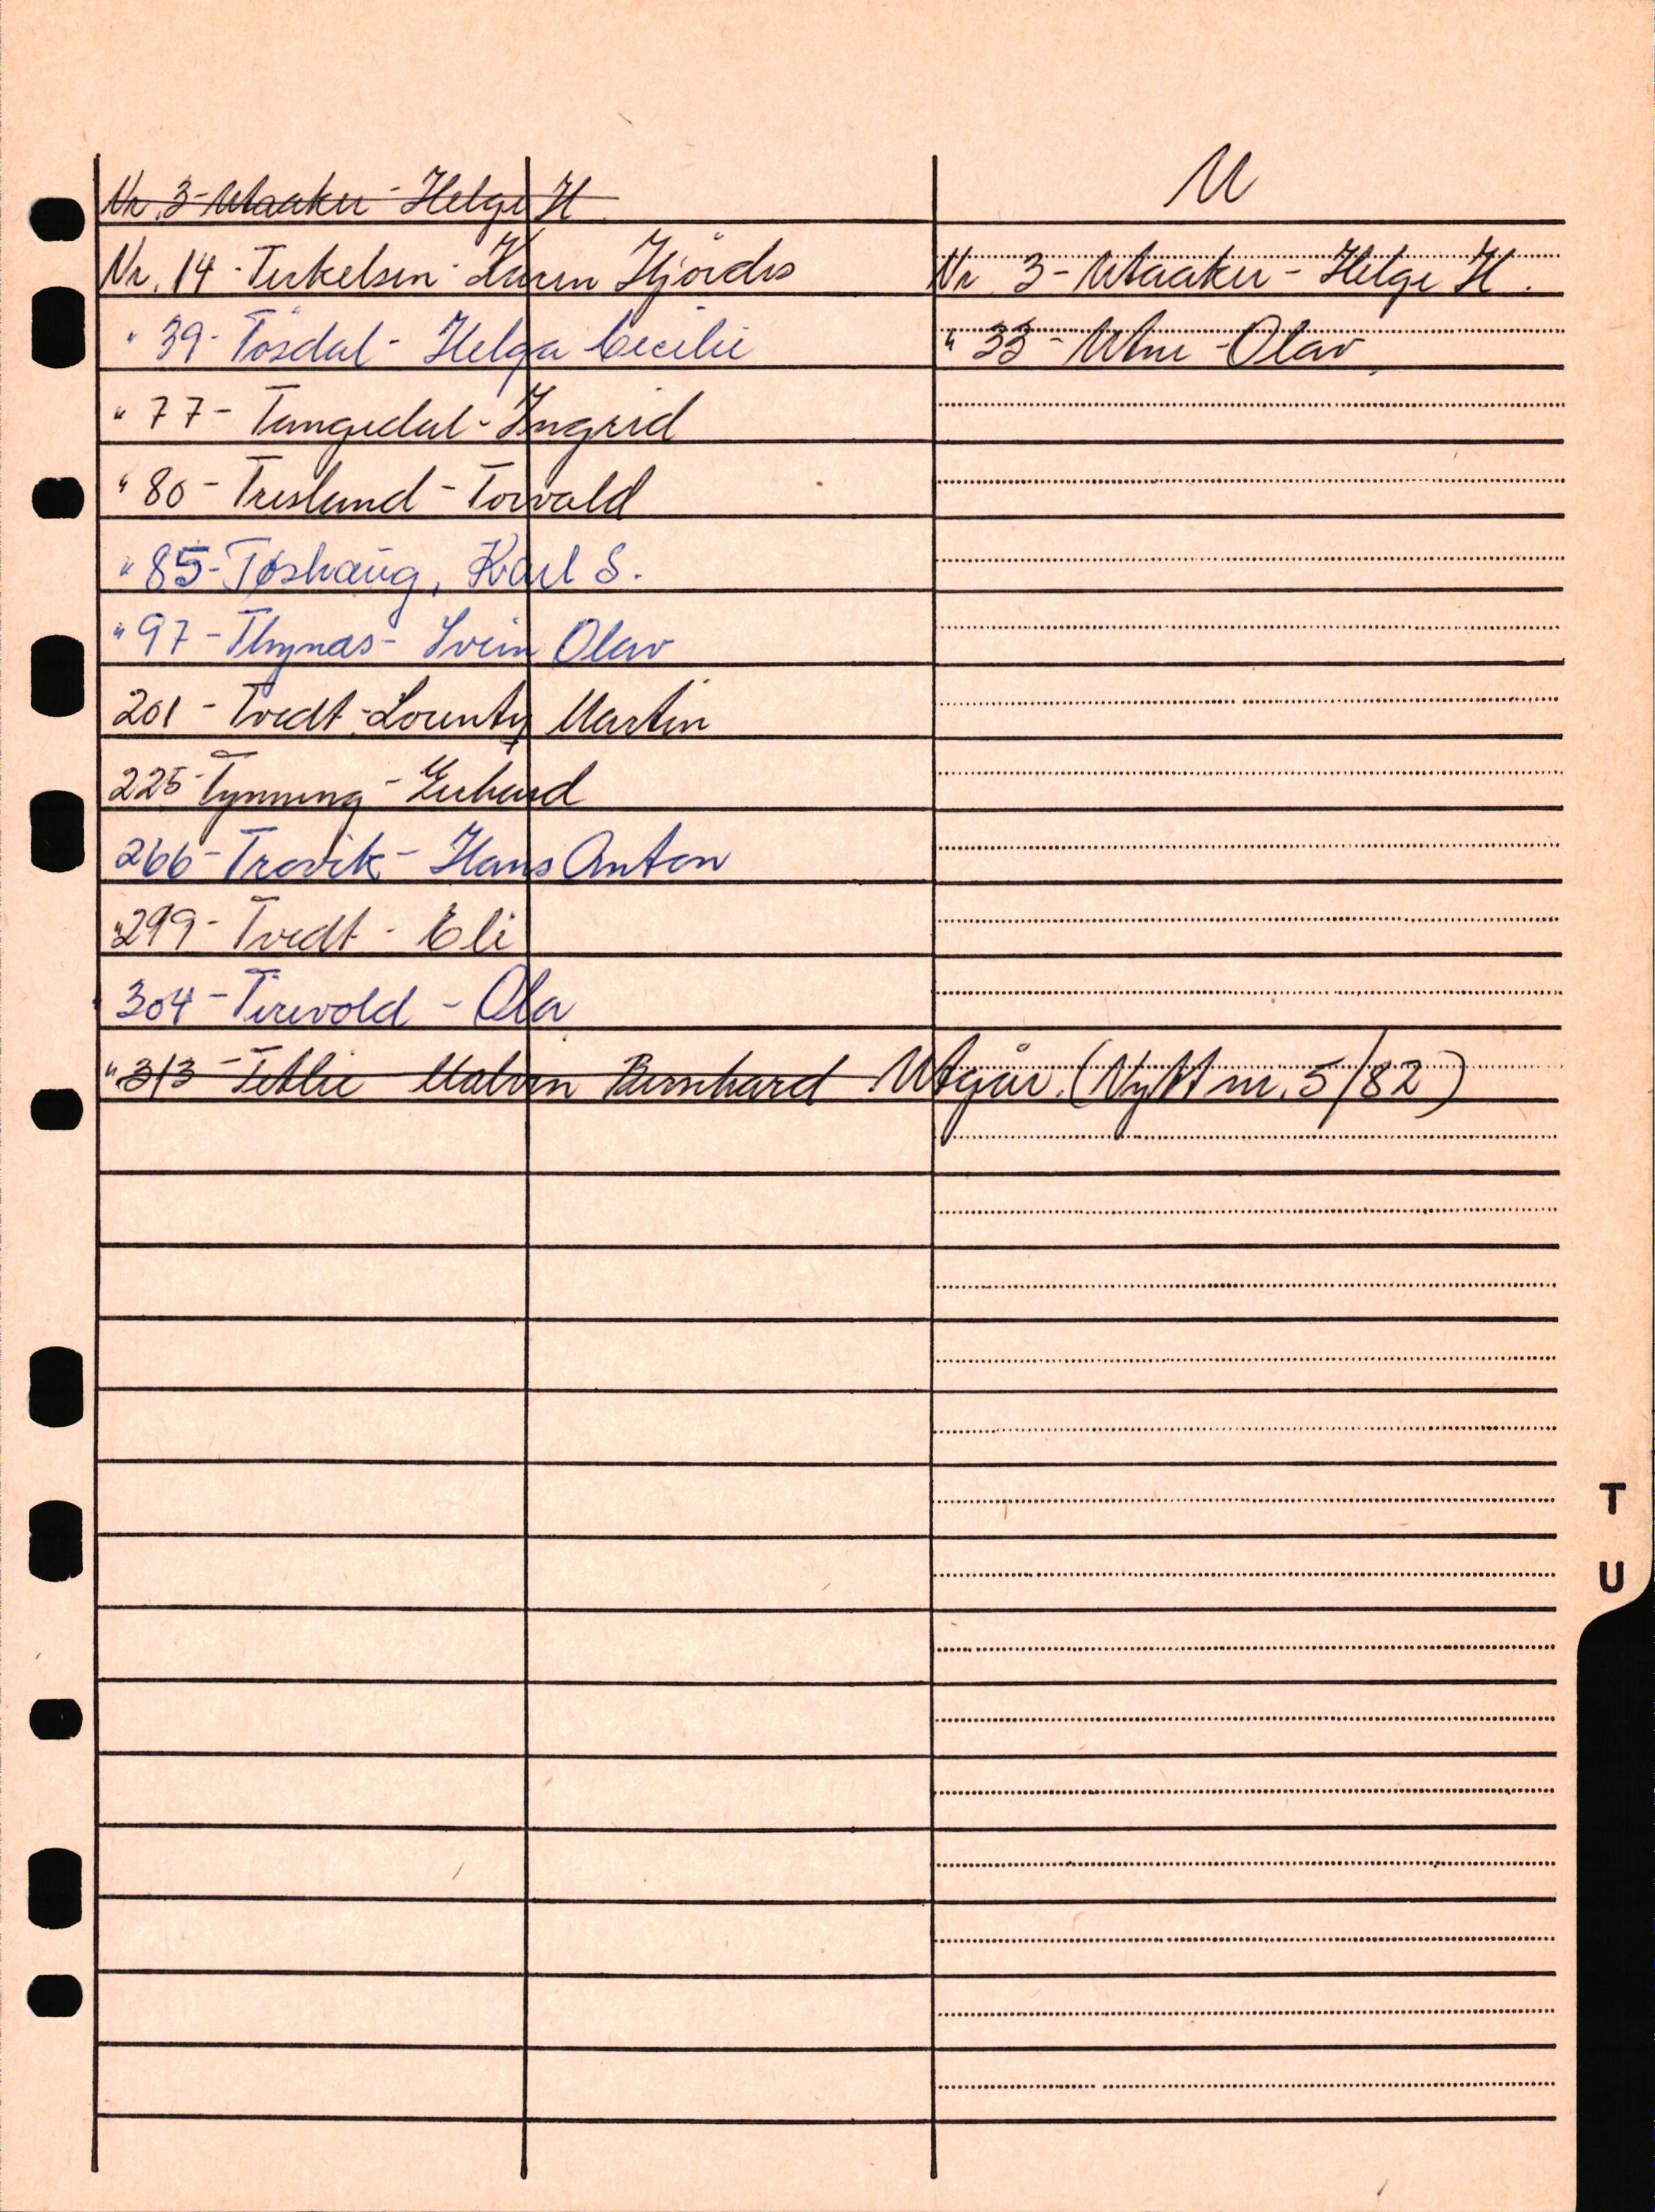 Nr. 3 - Utaaker - Helge H
U
Nr. 14 - Terkelsen - Karen Hjördis
Nr 3 - Utaaker - Helge H.
" 39 - Tösdal - Helga Cecilie
" 33 - Utne - Olav
" 77 - Tangedal - Ingrid
" 80 - Tresland - Torvald
" 85 - Tøshaug, Karl S.
" 97 - Thynas - Svein Olav
201 - Tvedt - Lorentz Martin
225 - Tynning - Gerhard
266 - Trovik - Hans Anton
" 299 - Tvedt - Eli
" 304 - Tirevold - Ola
" 313 - Tetlie Malvin Bernhard Utgår. (Nytt nr. 5/82)
T
U